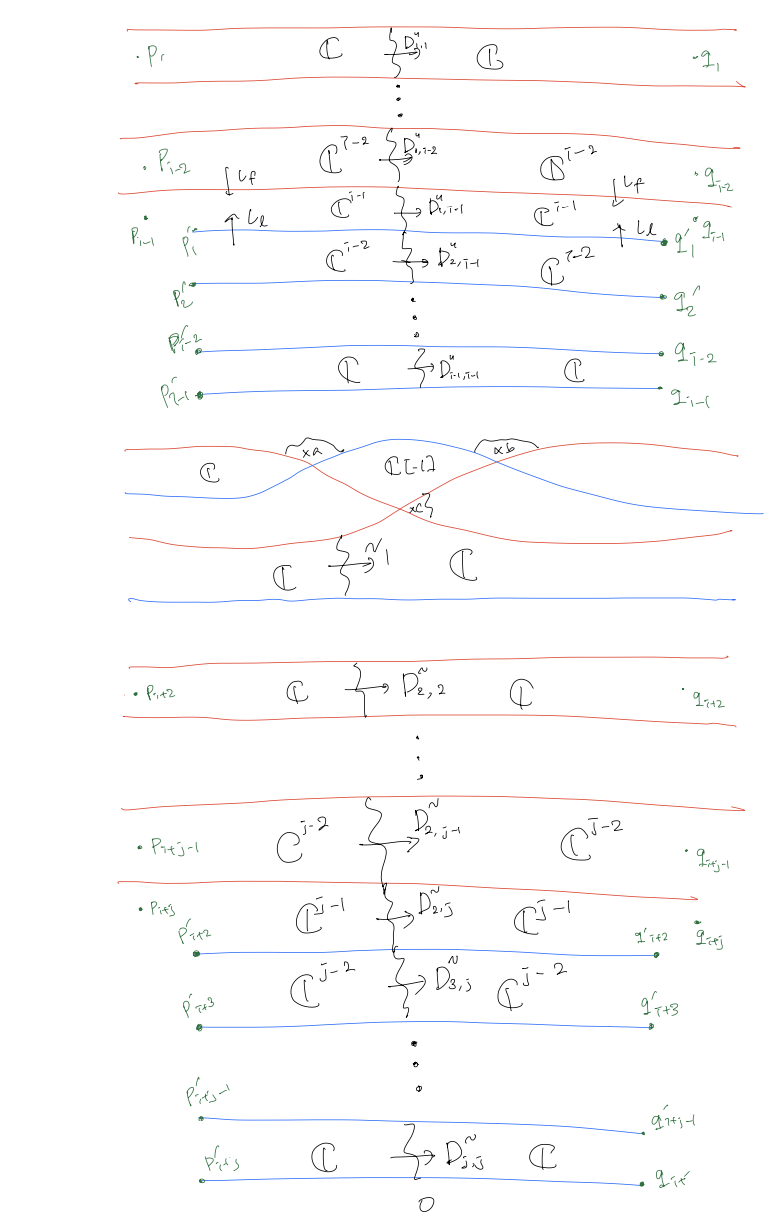 · P₁ ℂ D^u_{1,1} ℂ · q₁
⋮
· P_{i-2} ℂ^{i-2} D^u_{1,i-2} ℂ^{i-2} · q_{i-2}
↓ L_f ↓ L_f
P_{i-1} ↑ L_l ℂ^{i-1} D^u_{1,i-1} ℂ^{i-1} ↑ L_l q_{i-1}
P'₁ q'₁
ℂ^{i-2} D^u_{2,i-1} ℂ^{i-2}
P'₂ q'₂
⋮
P'_{i-2} q_{i-2}
ℂ D^u_{i-1,i-1} ℂ
P'_{i-1} q_{i-1}
xa xb
ℂ ℂ[-1]
xc
ℂ ~1 ℂ
· P_{i+2} ℂ D^~_{2,2} ℂ · q_{i+2}
⋮
· P_{i+j-1} ℂ^{j-2} D^~_{2,j-1} ℂ^{j-2} · q_{i+j-1}
· P_{i+j} ℂ^{j-1} D^~_{2,j} ℂ^{j-1} q_{i+j}
P'_{i+2} q'_{i+2}
ℂ^{j-2} D^~_{3,j} ℂ^{j-2}
P'_{i+3} q'_{i+3}
⋮
P'_{i+j-1} q'_{i+j-1}
P'_{i+j} ℂ D^~_{j,j} ℂ
0